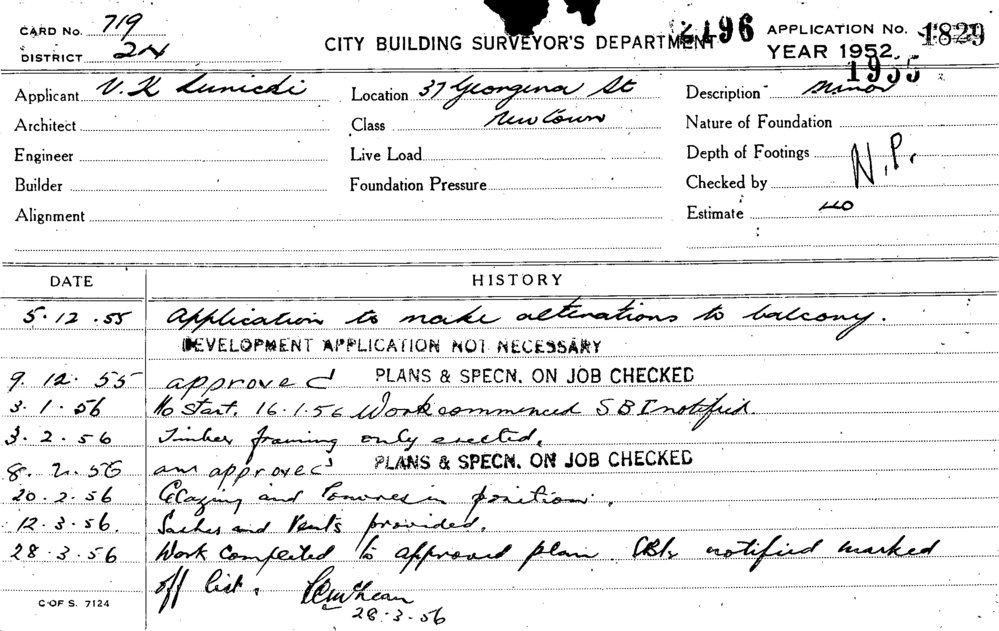 CARD No. 719
DISTRICT 24
CITY BUILDING SURVEYOR'S DEPARTMENT
2196
APPLICATION No. 1829
YEAR 1952
1955
Applicant V. K
Location 37 Georgina St
Description Minor
Architect
Class Newtown
Nature of Foundation
Engineer
Live Load
Depth of Footings N.P.
Builder
Foundation Pressure
Checked by
Alignment
Estimate 40
DATE HISTORY
5.12.55 Application to make alterations to balcony.
DEVELOPMENT APPLICATION NOT NECESSARY
9.12.55 approved PLANS & SPECN. ON JOB CHECKED
3.1.56 No start. 16.1.56 Work commenced SBI notified
3.2.56 Timber framing only erected.
8.2.56 am approved PLANS & SPECN. ON JOB CHECKED
20.2.56 Glazing and Louvres in position.
12.3.56. Sashes and Vents provided.
28.3.56 Work Completed to approved plan. notified marked
off list.
28.3.56
C OF S. 7124